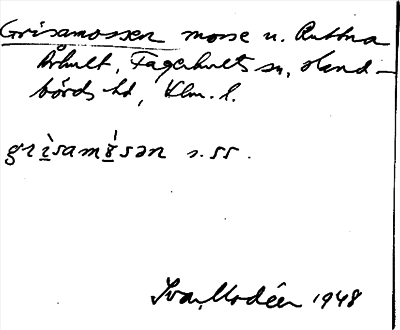 Grisamossen mosse n. Ruttna
Århult, Fagerhults sn, Hand-
börds hd, Klm. l.
grìsamósən s. ss.
Ivar Modéer 1948